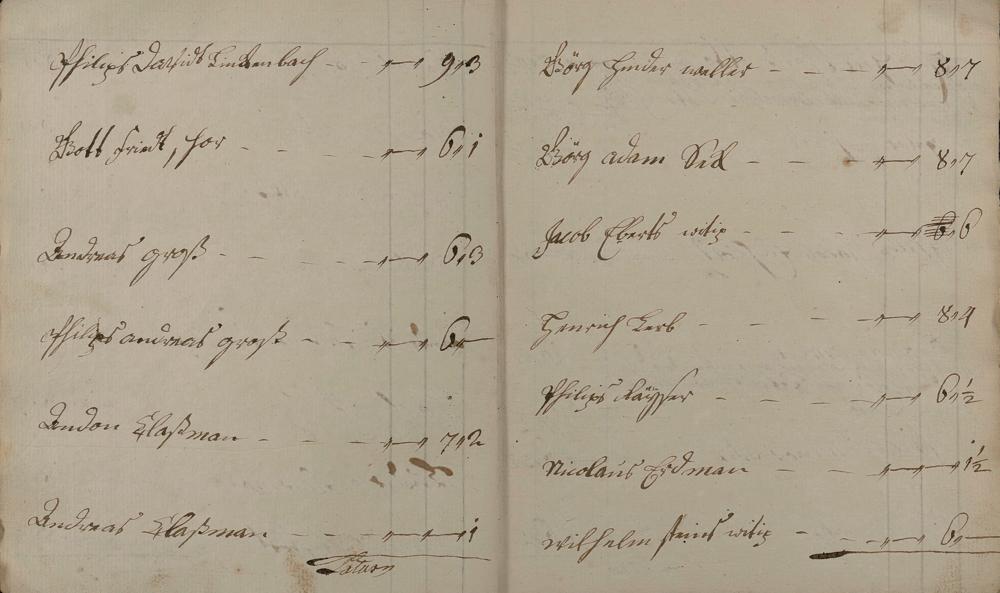 Philips Davidt Linkenbach - - „ — „ 9„3
Gottfriedt, Hor - - - „ — „ 6„1
Andreas groß - - - „ — „ 6„3
Philips andreas groß - - „ — „ 6„—
Andon Glaßman - - - „ — „ 7„2
Andreas Glaßman - - - „ — „ 1
Latus
Görg Hinder weller - - - „ — „ 8„7
Görg adam Sill - - - „ — „ 8„7
Jacob Eberts witip - - - „ — „ 6
Henrich Lerb - - - „ — „ 8„4
Philips Kaÿser - - - „ — „ 6„½
Nicolaus Erdman - - „ — „ — 1½
wilhelm steins witip - - „ — „ 6„—